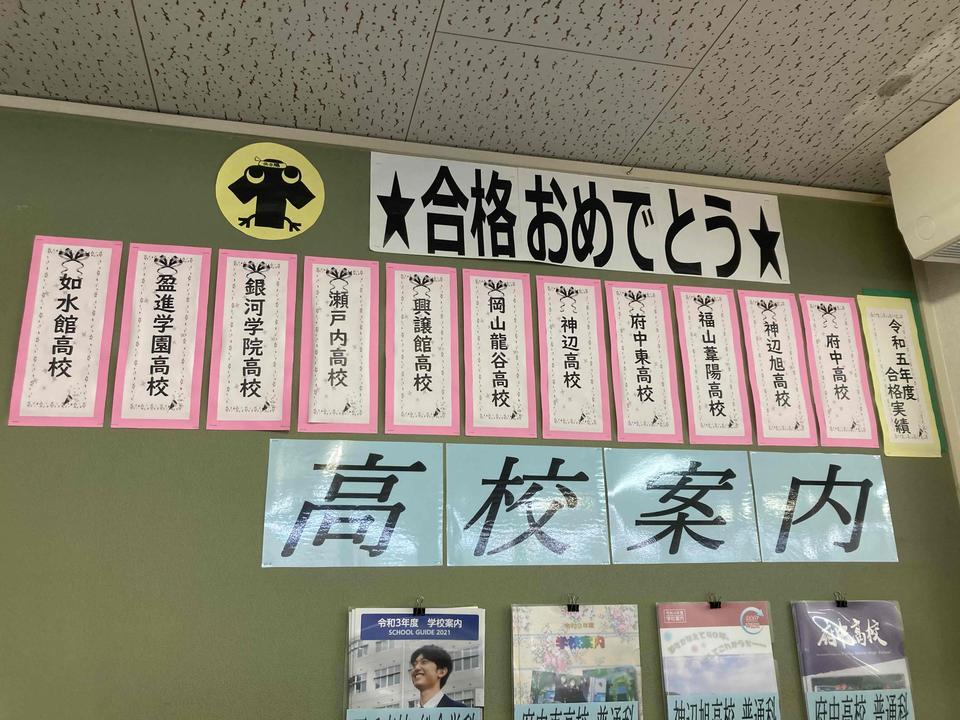 ★合格おめでとう★
令和五年度
合格実績
府中高校
神辺旭高校
福山葦陽高校
府中東高校
神辺高校
岡山龍谷高校
興譲館高校
瀬戸内高校
銀河学院高校
盈進学園高校
如水館高校
高校案内
令和3年度 学校案内
SCHOOL GUIDE 2021
学校案内
府中高校
府中東高校 普通科
神辺旭高校 普通科
府中高校 普通科